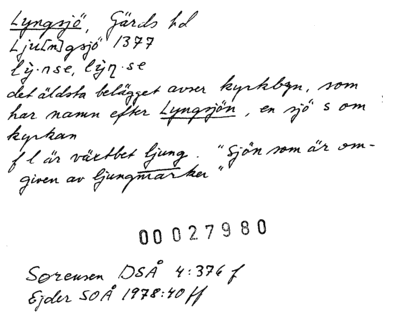 Lyngsjö, Gärds hd
Lju[n]gsjö 1377
lỳ·nse, lỳŋ·se
det äldsta belägget avser kyrkbyn, som
har namn efter Lyngsjön, en sjö s om
kyrkan
f l är växtbet ljung. "Sjön som är om-
given av ljungmarker"
00027980
Sørensen DSÅ 4:376 f
Ejder SOÅ 1978:40 ff